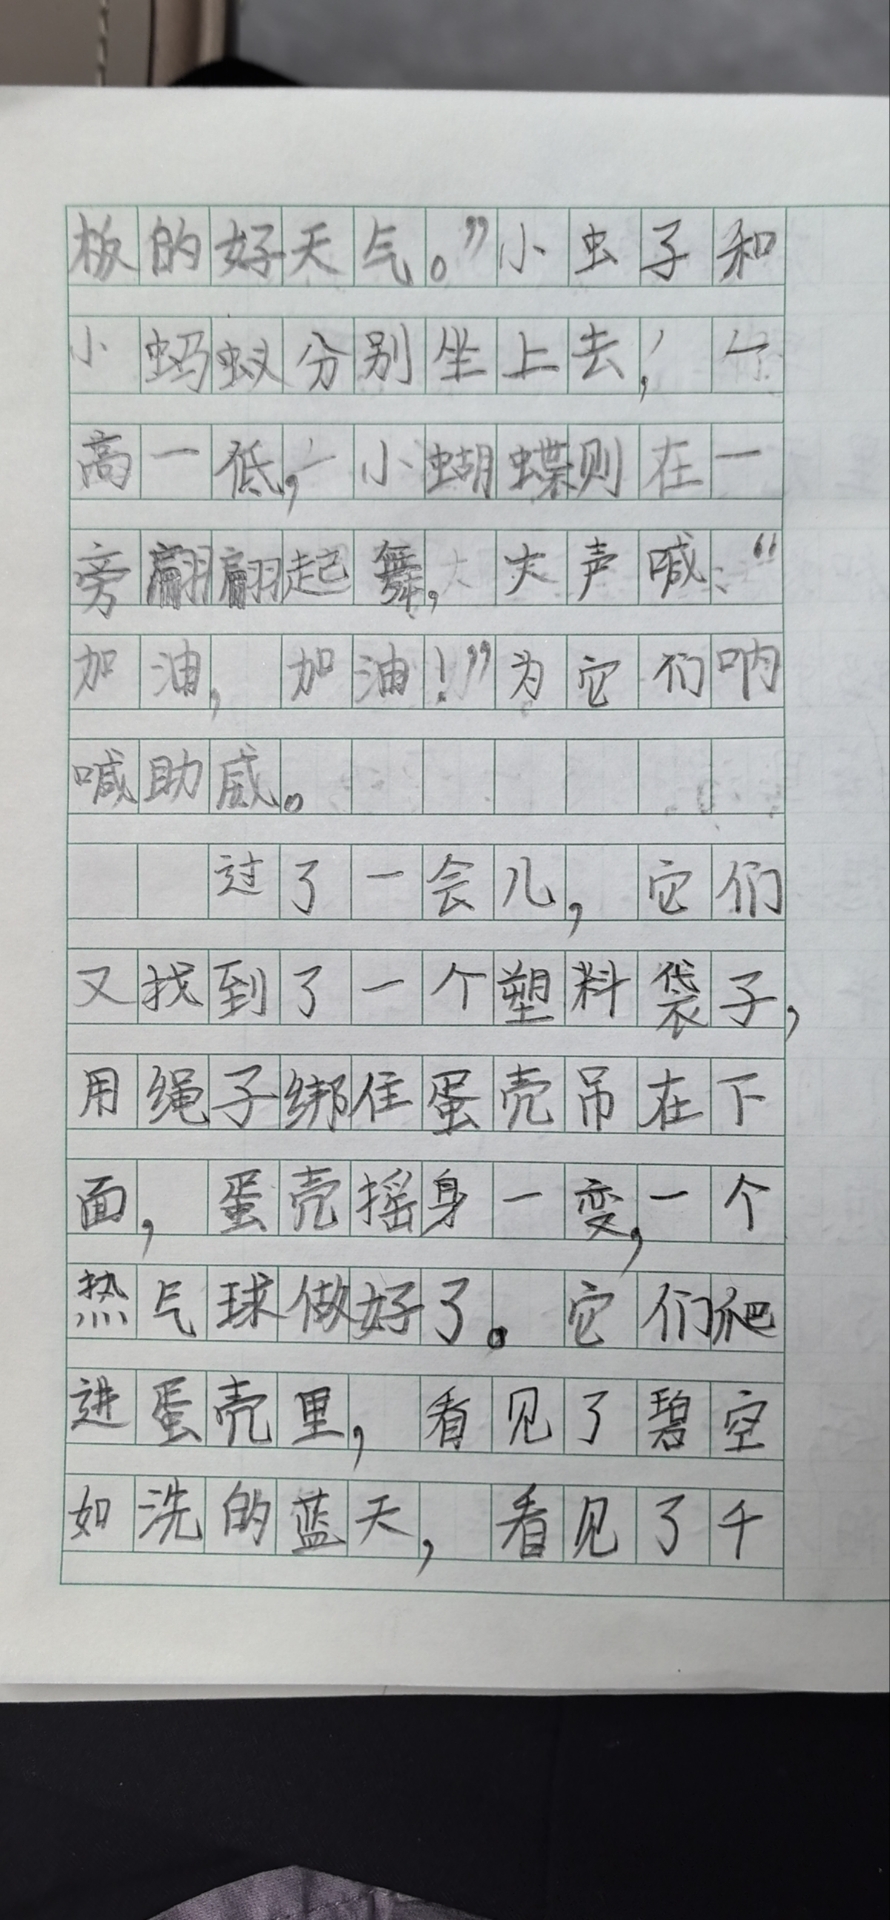 板的好天气。”小虫子和
小蚂蚁分别坐上去，一
高一低，小蝴蝶则在一
旁翩翩起舞，大声喊：“
加油，加油！”为它们呐
喊助威。
过了一会儿，它们
又找到了一个塑料袋子，
用绳子绑住蛋壳吊在下
面，蛋壳摇身一变，一个
热气球做好了。它们爬
进蛋壳里，看见了碧空
如洗的蓝天，看见了千